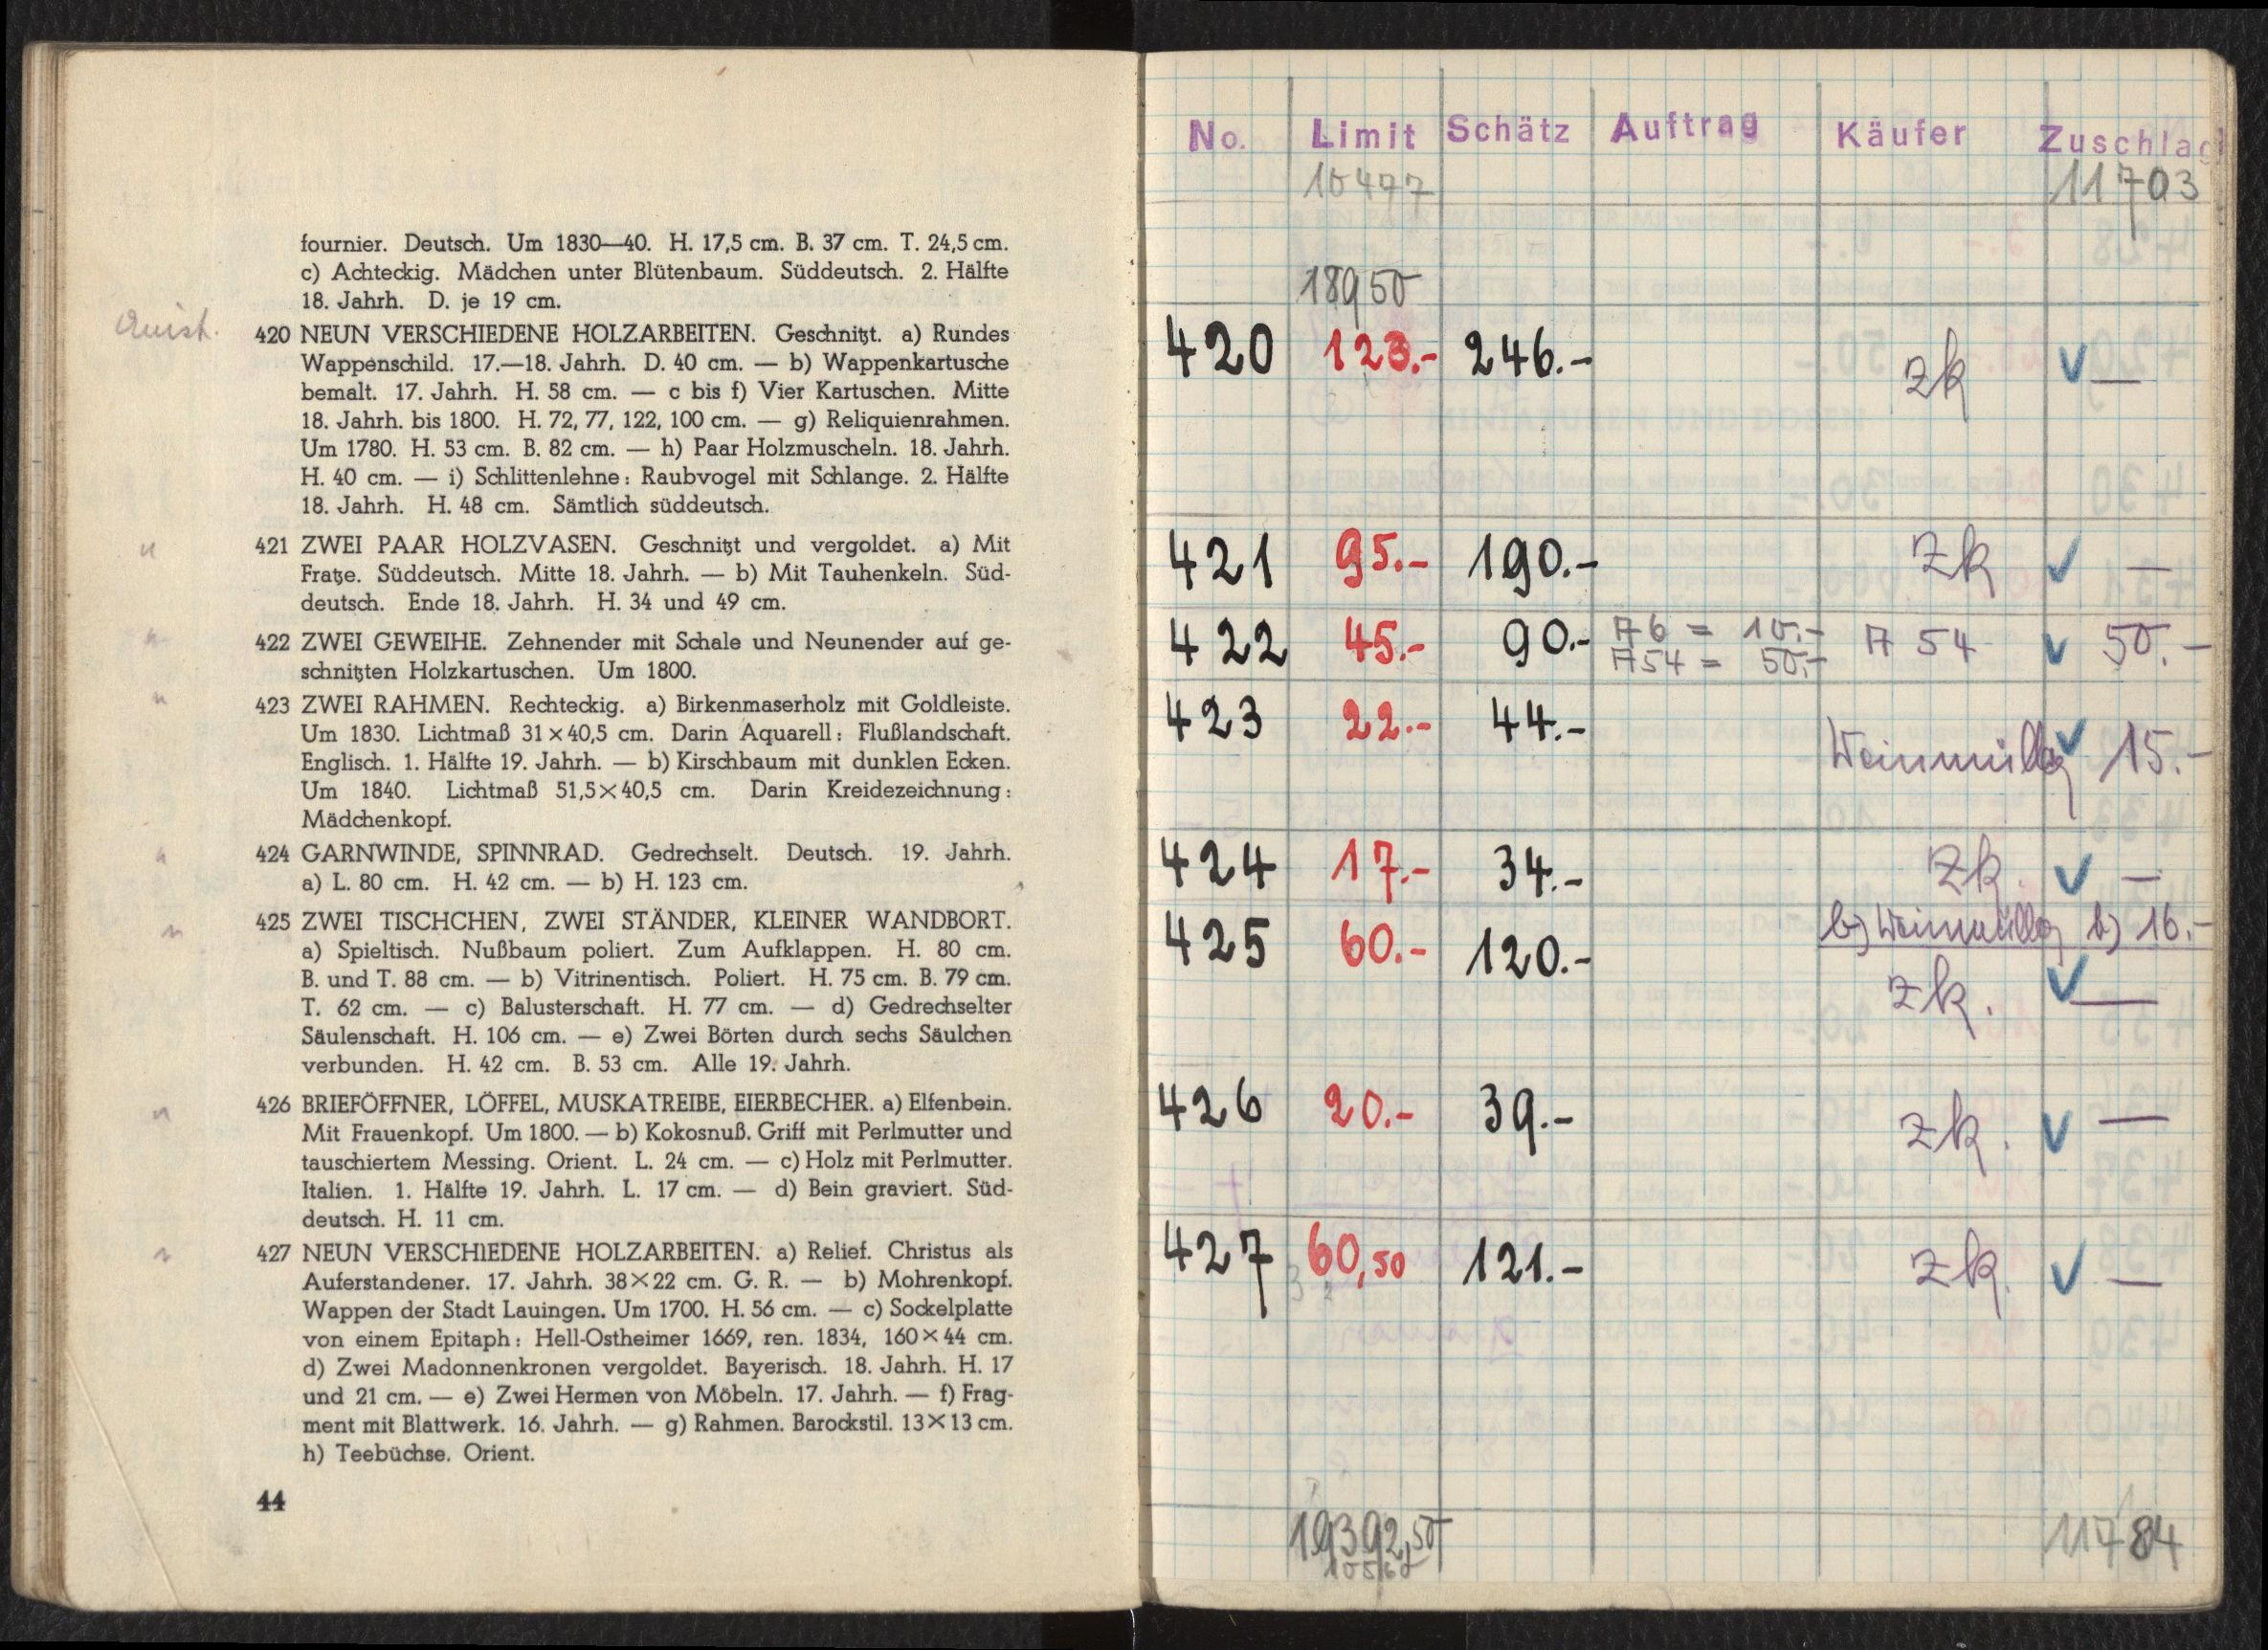 fournier. Deutsch. Um 1830—40. H. 17,5 cm. B. 37 cm. T. 24,5 cm.
c) Achteckig. Mädchen unter Blütenbaum. Süddeutsch. 2. Hälfte
18. Jahrh. D. je 19 cm.
420 NEUN VERSCHIEDENE HOLZARBEITEN. Geschnitzt. a) Rundes
Wappenschild. 17.—18. Jahrh. D. 40 cm. — b) Wappenkartusche
bemalt. 17. Jahrh. H. 58 cm. — c bis f) Vier Kartuschen. Mitte
18. Jahrh. bis 1800. H. 72, 77, 122, 100 cm. — g) Reliquienrahmen.
Um 1780. H. 53 cm. B. 82 cm. — h) Paar Holzmuscheln. 18. Jahrh.
H. 40 cm. — i) Schlittenlehne: Raubvogel mit Schlange. 2. Hälfte
18. Jahrh. H. 48 cm. Sämtlich süddeutsch.
" 421 ZWEI PAAR HOLZVASEN. Geschnitzt und vergoldet. a) Mit
Fratze. Süddeutsch. Mitte 18. Jahrh. — b) Mit Tauhenkeln. Süd-
deutsch. Ende 18. Jahrh. H. 34 und 49 cm.
" 422 ZWEI GEWEIHE. Zehnender mit Schale und Neunender auf ge-
schnitzten Holzkartuschen. Um 1800.
" 423 ZWEI RAHMEN. Rechteckig. a) Birkenmaserholz mit Goldleiste.
Um 1830. Lichtmaß 31×40,5 cm. Darin Aquarell: Flußlandschaft.
Englisch. 1. Hälfte 19. Jahrh. — b) Kirschbaum mit dunklen Ecken.
Um 1840. Lichtmaß 51,5×40,5 cm. Darin Kreidezeichnung:
Mädchenkopf.
" 424 GARNWINDE, SPINNRAD. Gedrechselt. Deutsch. 19. Jahrh.
a) L. 80 cm. H. 42 cm. — b) H. 123 cm.
" 425 ZWEI TISCHCHEN, ZWEI STÄNDER, KLEINER WANDBORT.
a) Spieltisch. Nußbaum poliert. Zum Aufklappen. H. 80 cm.
B. und T. 88 cm. — b) Vitrinentisch. Poliert. H. 75 cm. B. 79 cm.
T. 62 cm. — c) Balusterschaft. H. 77 cm. — d) Gedrechselter
Säulenschaft. H. 106 cm. — e) Zwei Börten durch sechs Säulchen
verbunden. H. 42 cm. B. 53 cm. Alle 19. Jahrh.
" 426 BRIEFÖFFNER, LÖFFEL, MUSKATREIBE, EIERBECHER. a) Elfenbein.
Mit Frauenkopf. Um 1800. — b) Kokosnuß. Griff mit Perlmutter und
tauschiertem Messing. Orient. L. 24 cm. — c) Holz mit Perlmutter.
Italien. 1. Hälfte 19. Jahrh. L. 17 cm. — d) Bein graviert. Süd-
deutsch. H. 11 cm.
" 427 NEUN VERSCHIEDENE HOLZARBEITEN. a) Relief. Christus als
Auferstandener. 17. Jahrh. 38×22 cm. G. R. — b) Mohrenkopf.
Wappen der Stadt Lauingen. Um 1700. H. 56 cm. — c) Sockelplatte
von einem Epitaph: Hell-Ostheimer 1669, ren. 1834, 160×44 cm.
d) Zwei Madonnenkronen vergoldet. Bayerisch. 18. Jahrh. H. 17
und 21 cm. — e) Zwei Hermen von Möbeln. 17. Jahrh. — f) Frag-
ment mit Blattwerk. 16. Jahrh. — g) Rahmen. Barockstil. 13×13 cm.
h) Teebüchse. Orient.
44
No. Limit Schätz Auftrag Käufer Zuschlag
10477 11703
18950
420 123.- 246.- zk ✓ —
421 95.- 190.- zk ✓ —
422 45.- 90.- A 6 = 10.- A 54 ✓ 50.-
A 54 = 50.-
423 22.- 44.- Weinmüller ✓ 15.-
424 17.- 34.- zk. ✓ —
425 60.- 120.- b) Weinmüller b) 16.-
zk. ✓ —
426 20.- 39.- zk. ✓ —
427 60,50 121.- zk. ✓ —
19392,50 11784